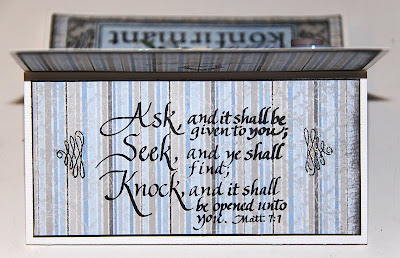 konfirmant
Ask, and it shall be
given to you;
Seek, and ye shall
find;
Knock, and it shall
be opened unto
you. Matt. 7:7